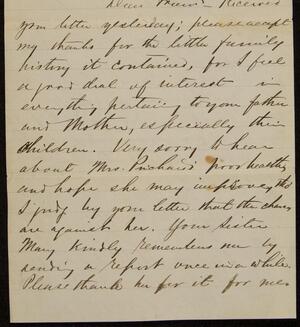 Dear Friend - Received
your letter yesterday; please accept
my thanks for the little family
history it contained, for I feel
a good deal of interest in
everything pertaining to your father
and Mother, especially their
children. Very sorry to hear
about Mrs. poor health
and hope she may improve, tho
I judge by your letter that the chances
are against her. Your Sister
Mary kindly remembers me by
sending a report once in a while.
Please thank her for it for me.